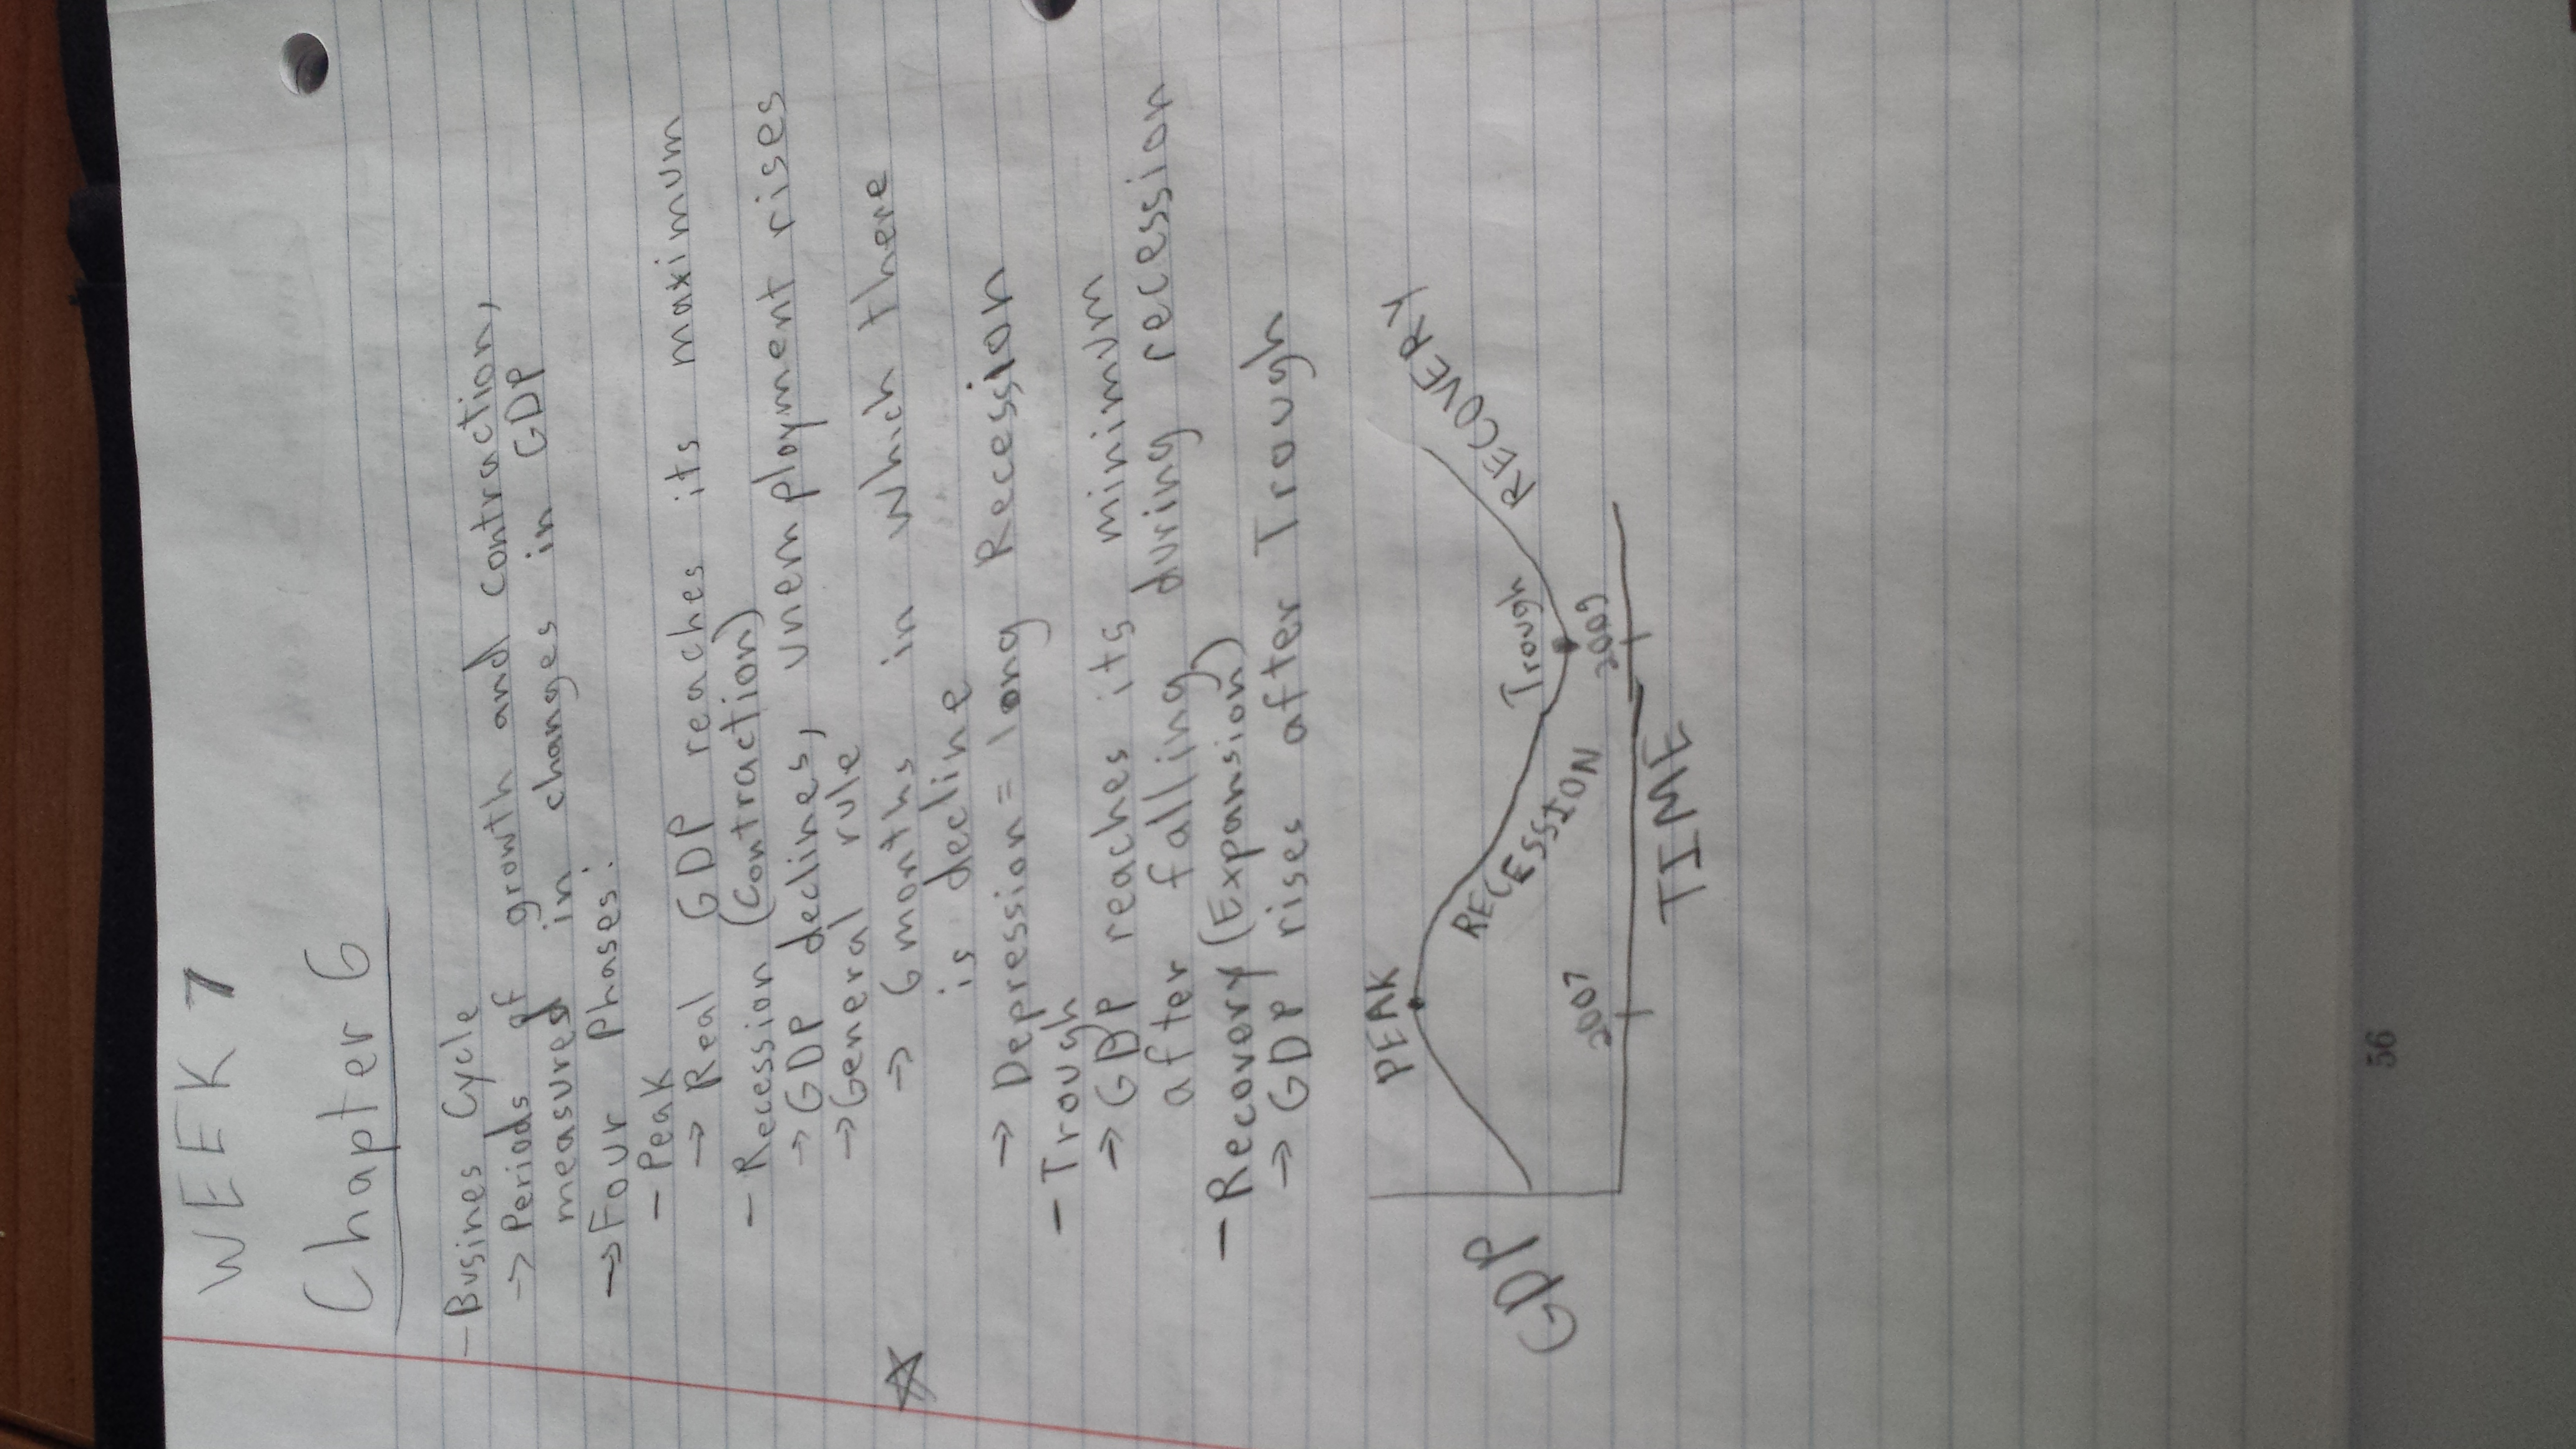 WEEK 7
Chapter 6
- Busines Cycle
→ Periods of growth and contraction,
measured in changes in GDP
→ Four phases:
- Peak
→ Real GDP reaches its maximum
- Recession (Contraction)
→ GDP declines, unemployment rises
→ General rule
→ 6 months in which there
is decline
→ Depression = long Recession
- Trough
→ GDP reaches its minimum
after falling during recession
- Recovery (Expansion)
→ GDP rises after Trough
PEAK
RECOVERY
RECESSION
Trough
GDP
2007
2009
TIME
56